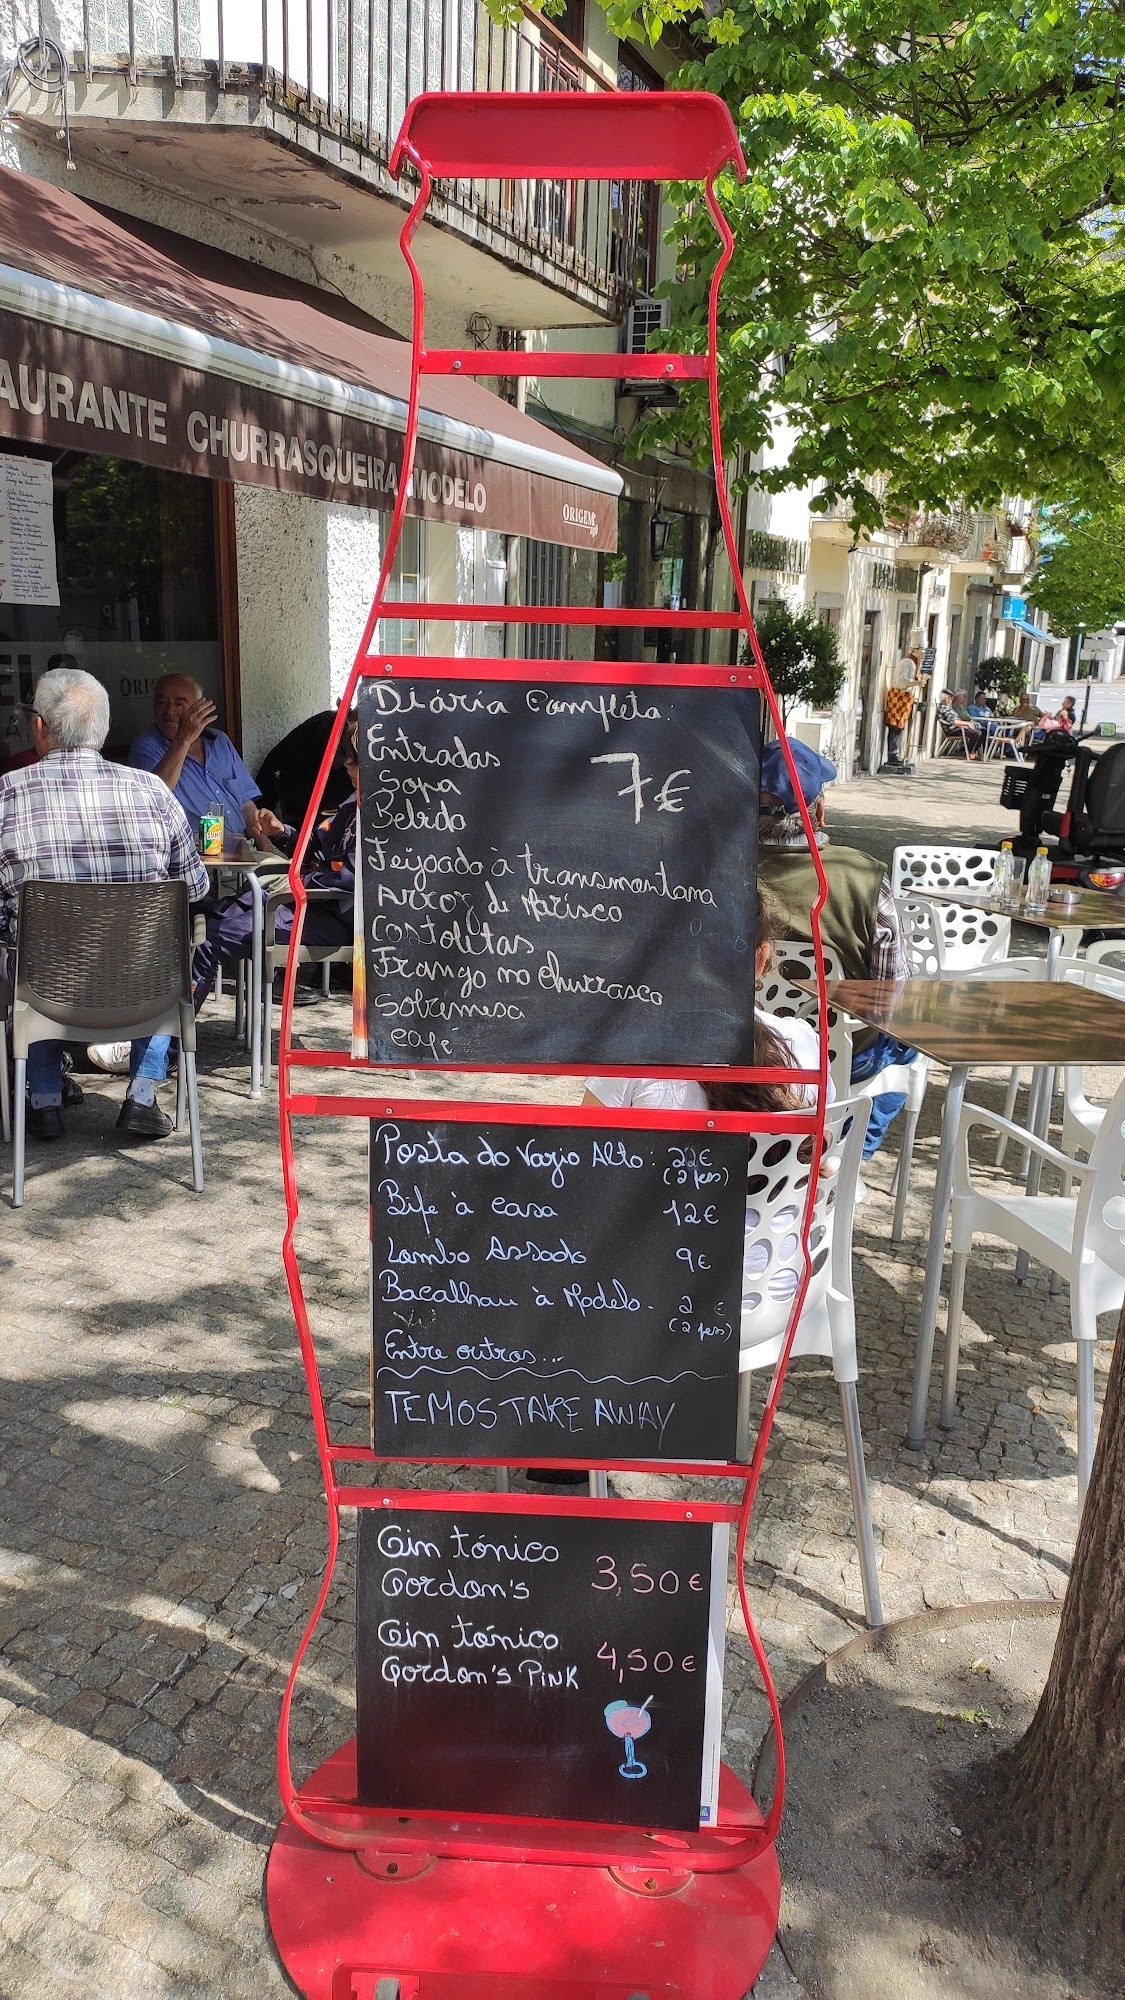 AURANTE CHURRASQUEIRA MODELO
ORIGEM
Diária Completa:
Entradas
7€
Sopa
Bebida
Feijoada à transmontana
Arroz de Marisco
Costoletas
Frango no Churrasco
Sobremesa
Café
Posta do Vazio Alto: 22€
(2 pes)
Bife à casa 12€
Lombo Assado 9€
Bacalhau à Modelo. 2 €
(2 pes)
Entre outros...
TEMOS TAKE AWAY
Gin tónico
Gordon's 3,50€
Gin tónico
Gordon's PINK 4,50€